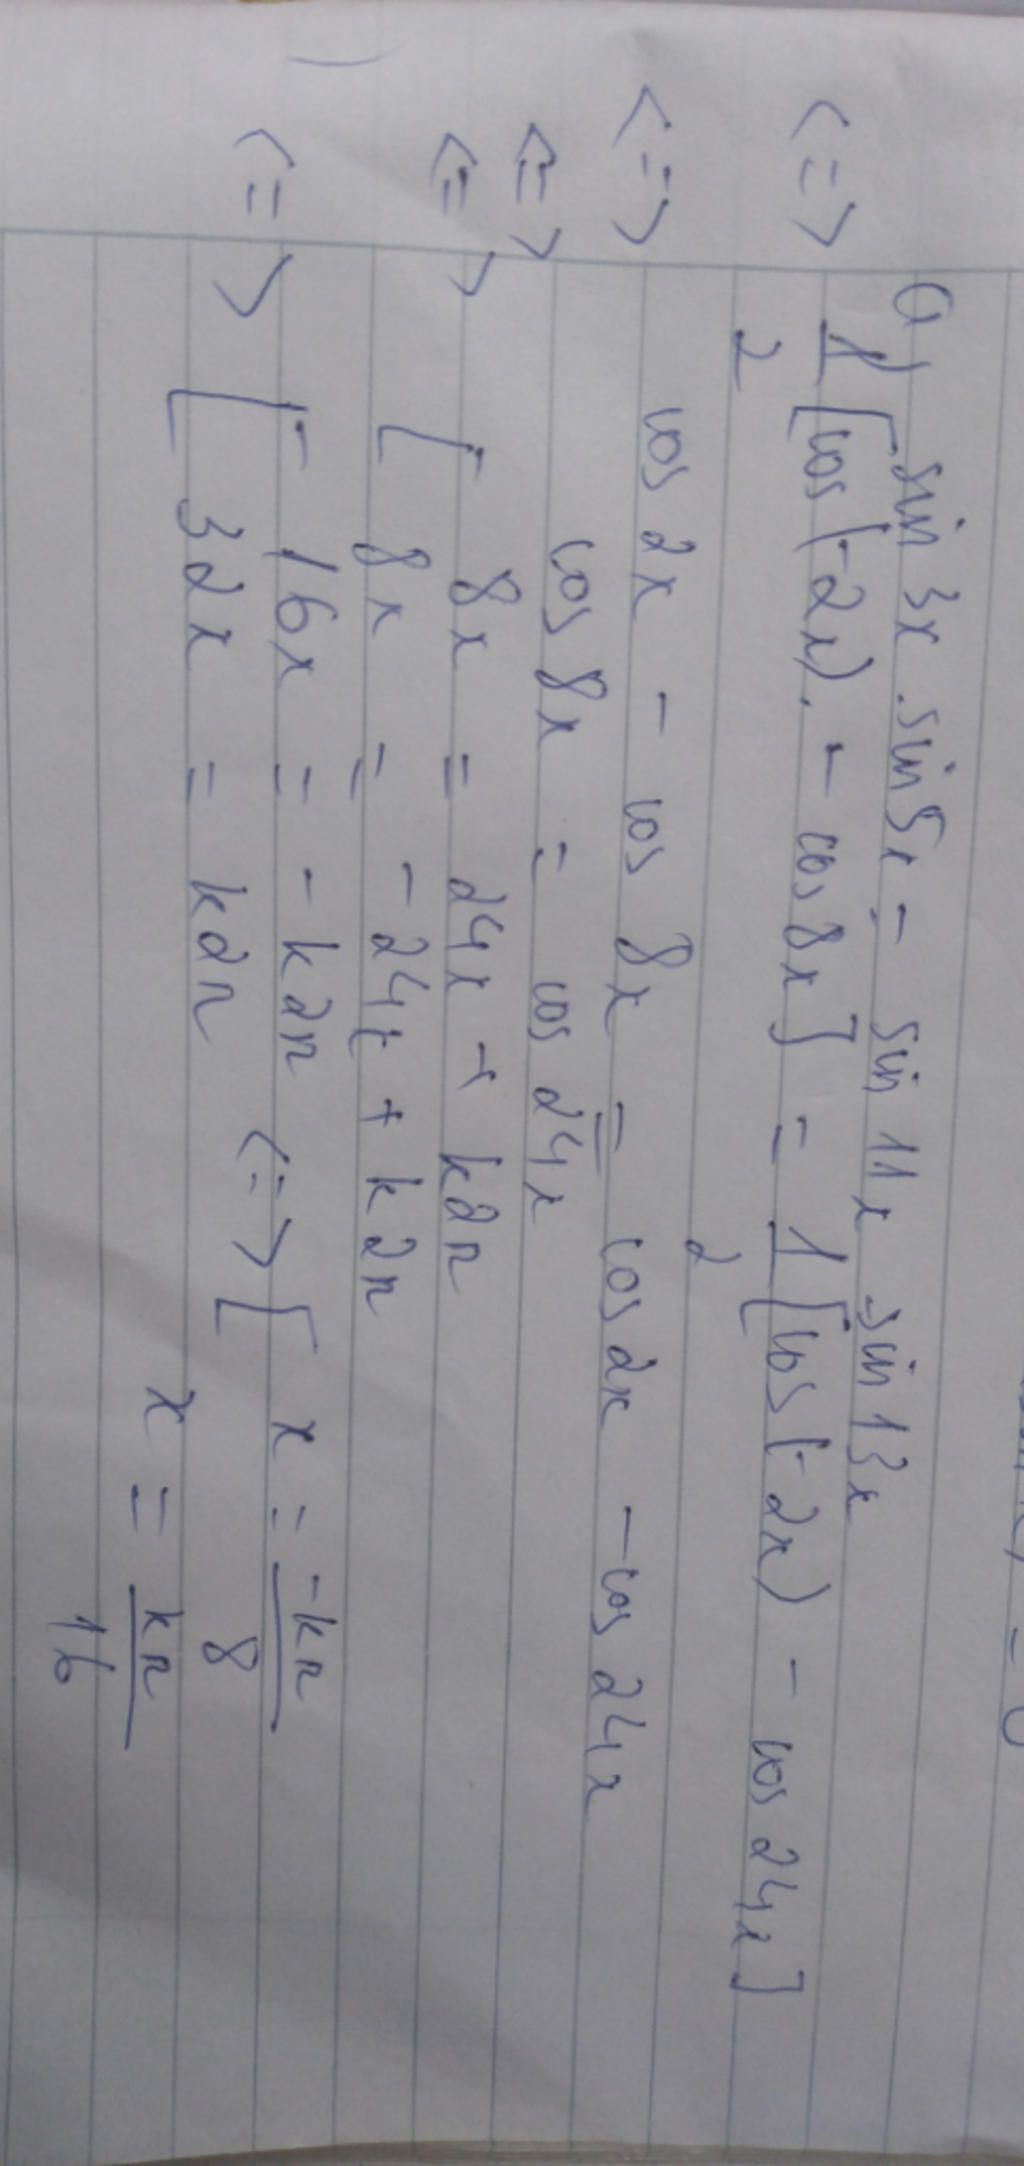 a) sin 3x . sin 5x = sin 11x . sin 13x
<=> 1/2 [cos (-2x) - cos 8x] = 1/2 [cos (-2x) - cos 24x]
<=> cos 2x - cos 8x = cos 2x - cos 24x
<=> cos 8x = cos 24x
<=> [ 8x = 24x + k2π
8x = -24x + k2π
<=> [ -16x = -k2π <=> [ x = -kπ/8
32x = k2π x = kπ/16